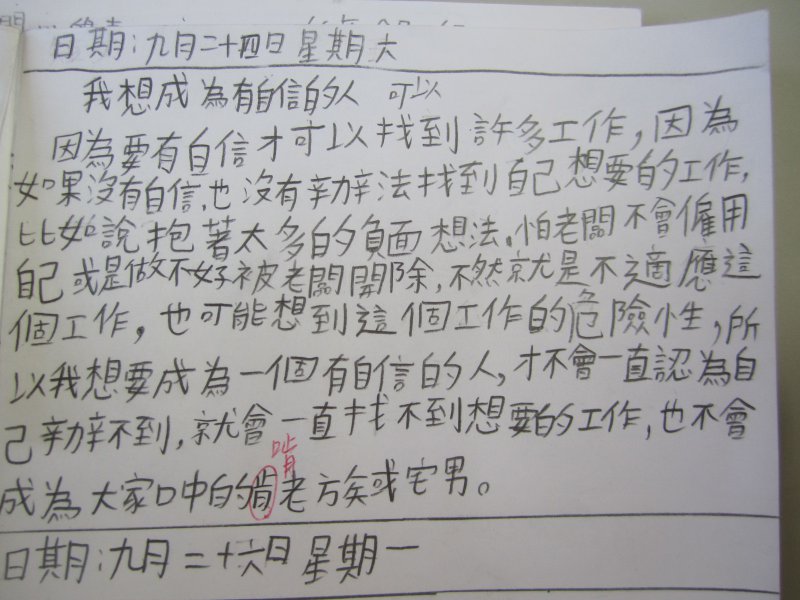 日期:九月二十四日星期六
我想成為有自信的人 可以
因為要有自信才可以找到許多工作,因為
如果沒有自信,也沒有辦法找到自己想要的工作,
比如說抱著太多的負面想法。怕老闆不會僱用
自己或是做不好被老闆開除,不然就是不適應這
個工作,也可能想到這個工作的危險性,所
以我想要成為一個有自信的人,才不會一直認為自
己辦不到,就會一直找不到想要的工作,也不會
啃
成為大家口中的肯老族或宅男。
日期:九月二十六日星期一